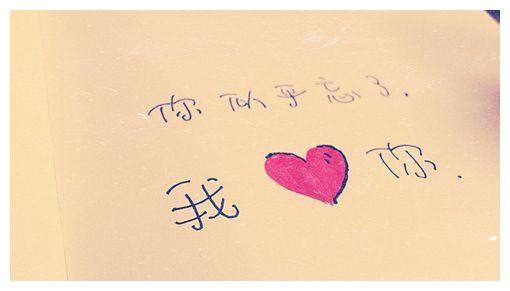 你似乎忘了.
我❤你.